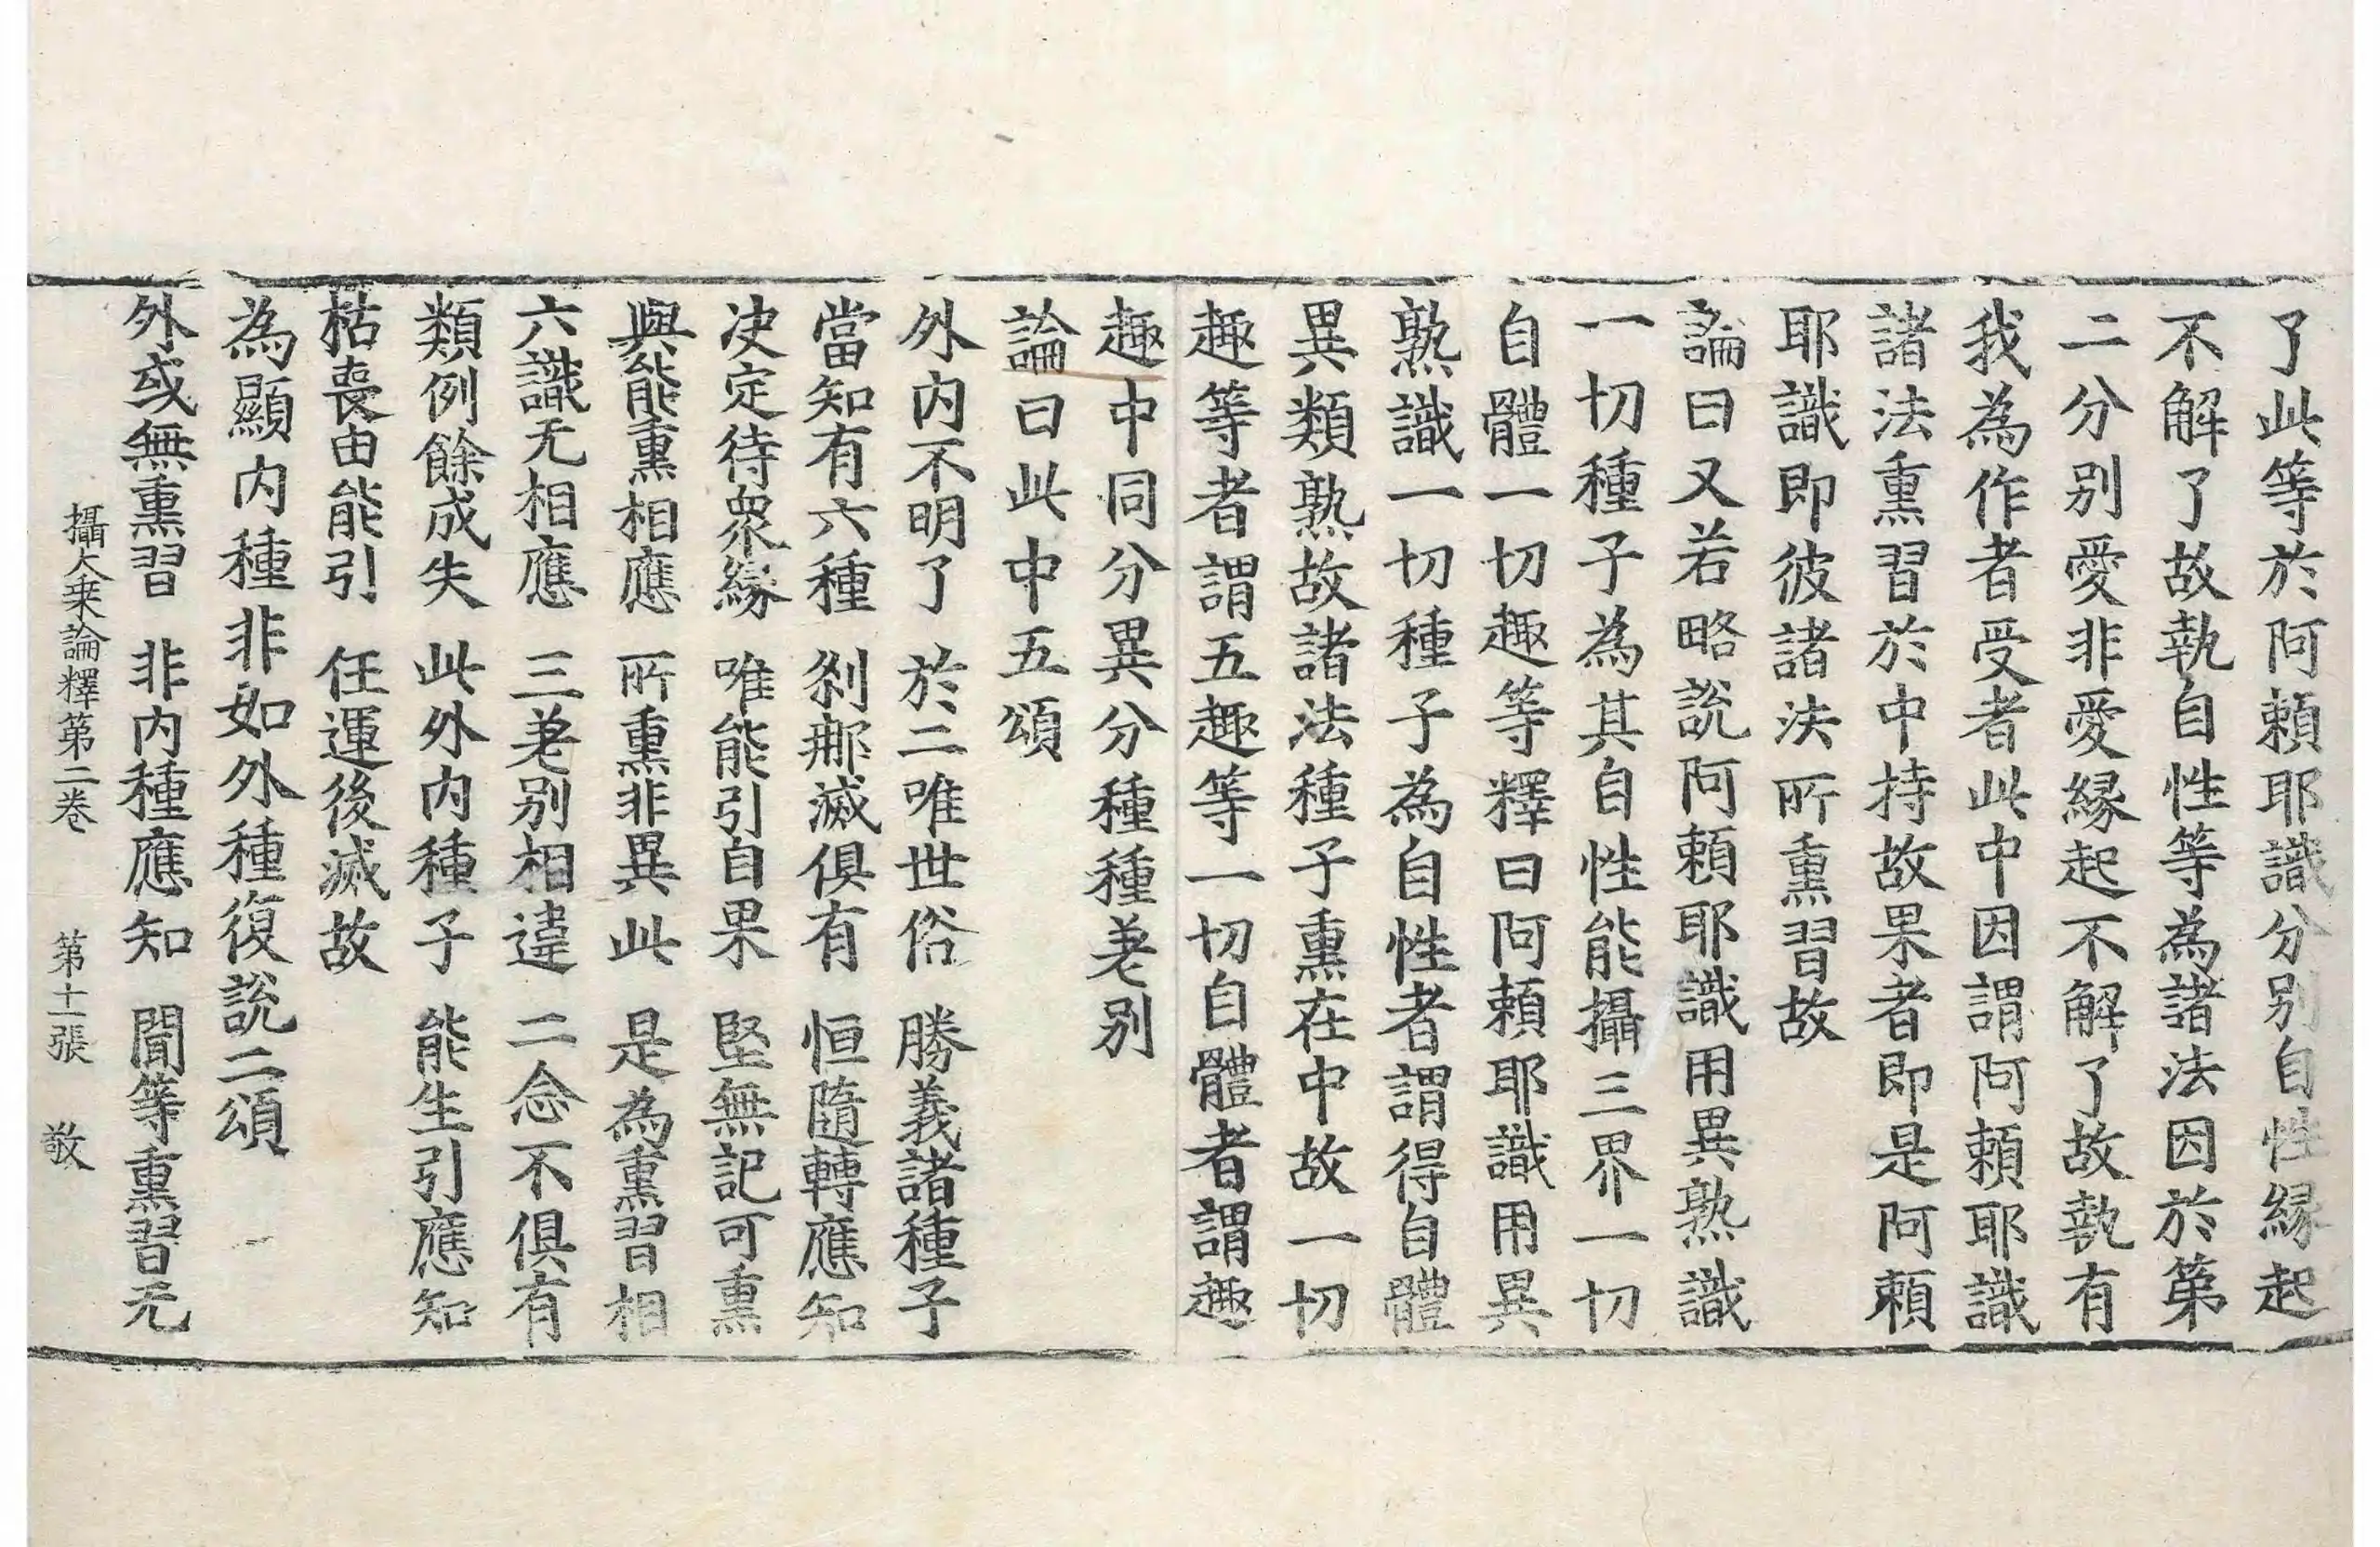 了此等於阿頼耶識分别自性縁起
不解了故執自性等為諸法因於第
二分别愛非愛縁起不解了故執有
我為作者受者此中因謂阿頼耶識
諸法熏習於中持故果者即是阿頼
耶識即彼諸法所熏習故
論曰又若略說阿頼耶識用異熟識
一切種子為其自性能攝三界一切
自體一切趣等釋曰阿頼耶識用異
熟識一切種子為自性者謂得自體
異類熟故諸法種子熏在中故一切
趣等者謂五趣等一切自體者謂趣
趣中同分異分種種差别
論曰此中五頌
外内不明了　於二唯世俗　勝義諸種子
當知有六種　刹那滅俱有　恒隨轉應知
决定待衆緣　唯能引自果　堅無記可熏
與能熏相應　所熏非異此　是為熏習相
六識无相應　三差别相違　二念不俱有
類例餘成失　此外内種子　能生引應知
枯喪由能引　任運後滅故
為顯内種非如外種復說二頌
外或無熏習　非内種應知　聞等熏習无
攝大乗論釋第二卷　第十一張　敬